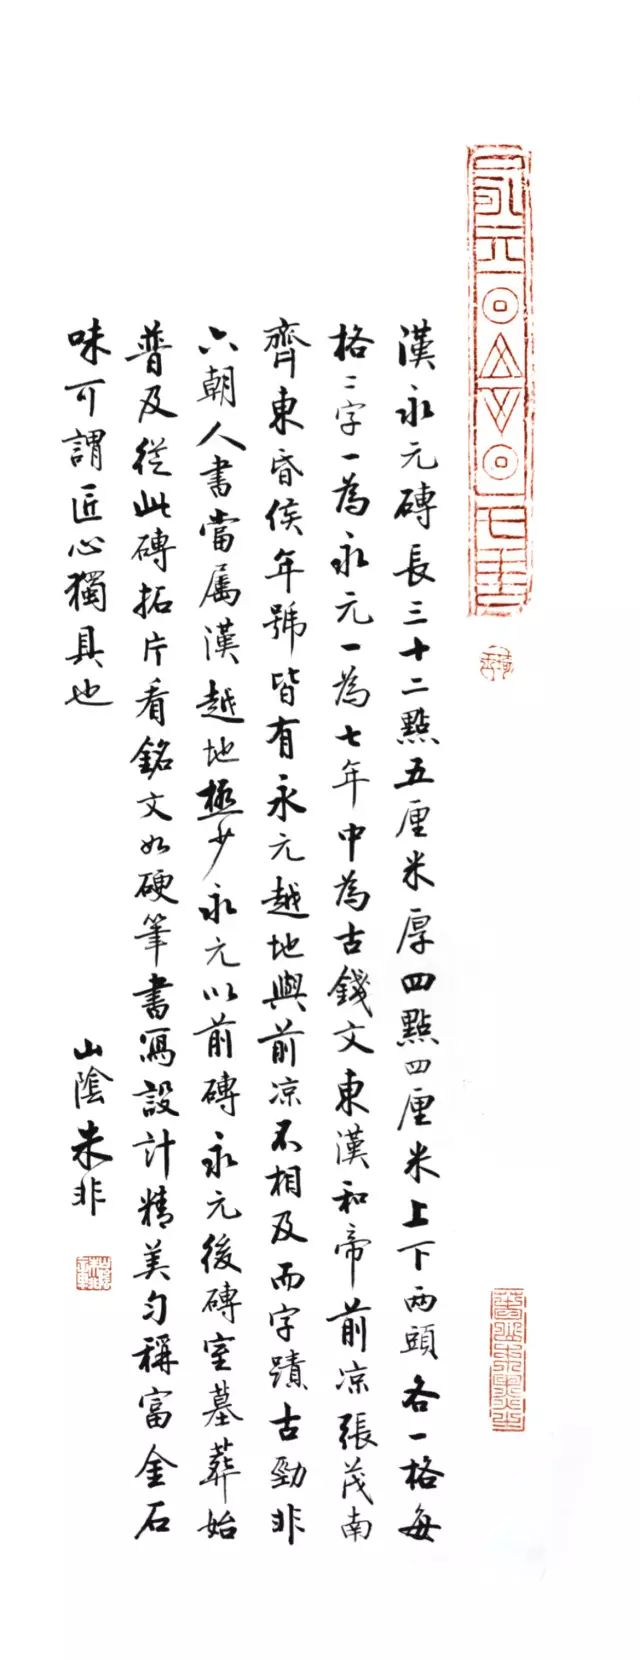 永元
七年
漢永元磚長三十二點五厘米厚四點四厘米上下兩頭各一格每
格二字一為永元一為七年中為古錢文東漢和帝前凉張茂南
齊東昏侯年號皆有永元越地與前凉不相及而字蹟古勁非
六朝人書當屬漢越地極少永元以前磚永元後磚室墓葬始
普及從此磚拓片看銘文如硬筆書寫設計精美勻稱富金石
味可謂匠心獨具也
山陰朱非